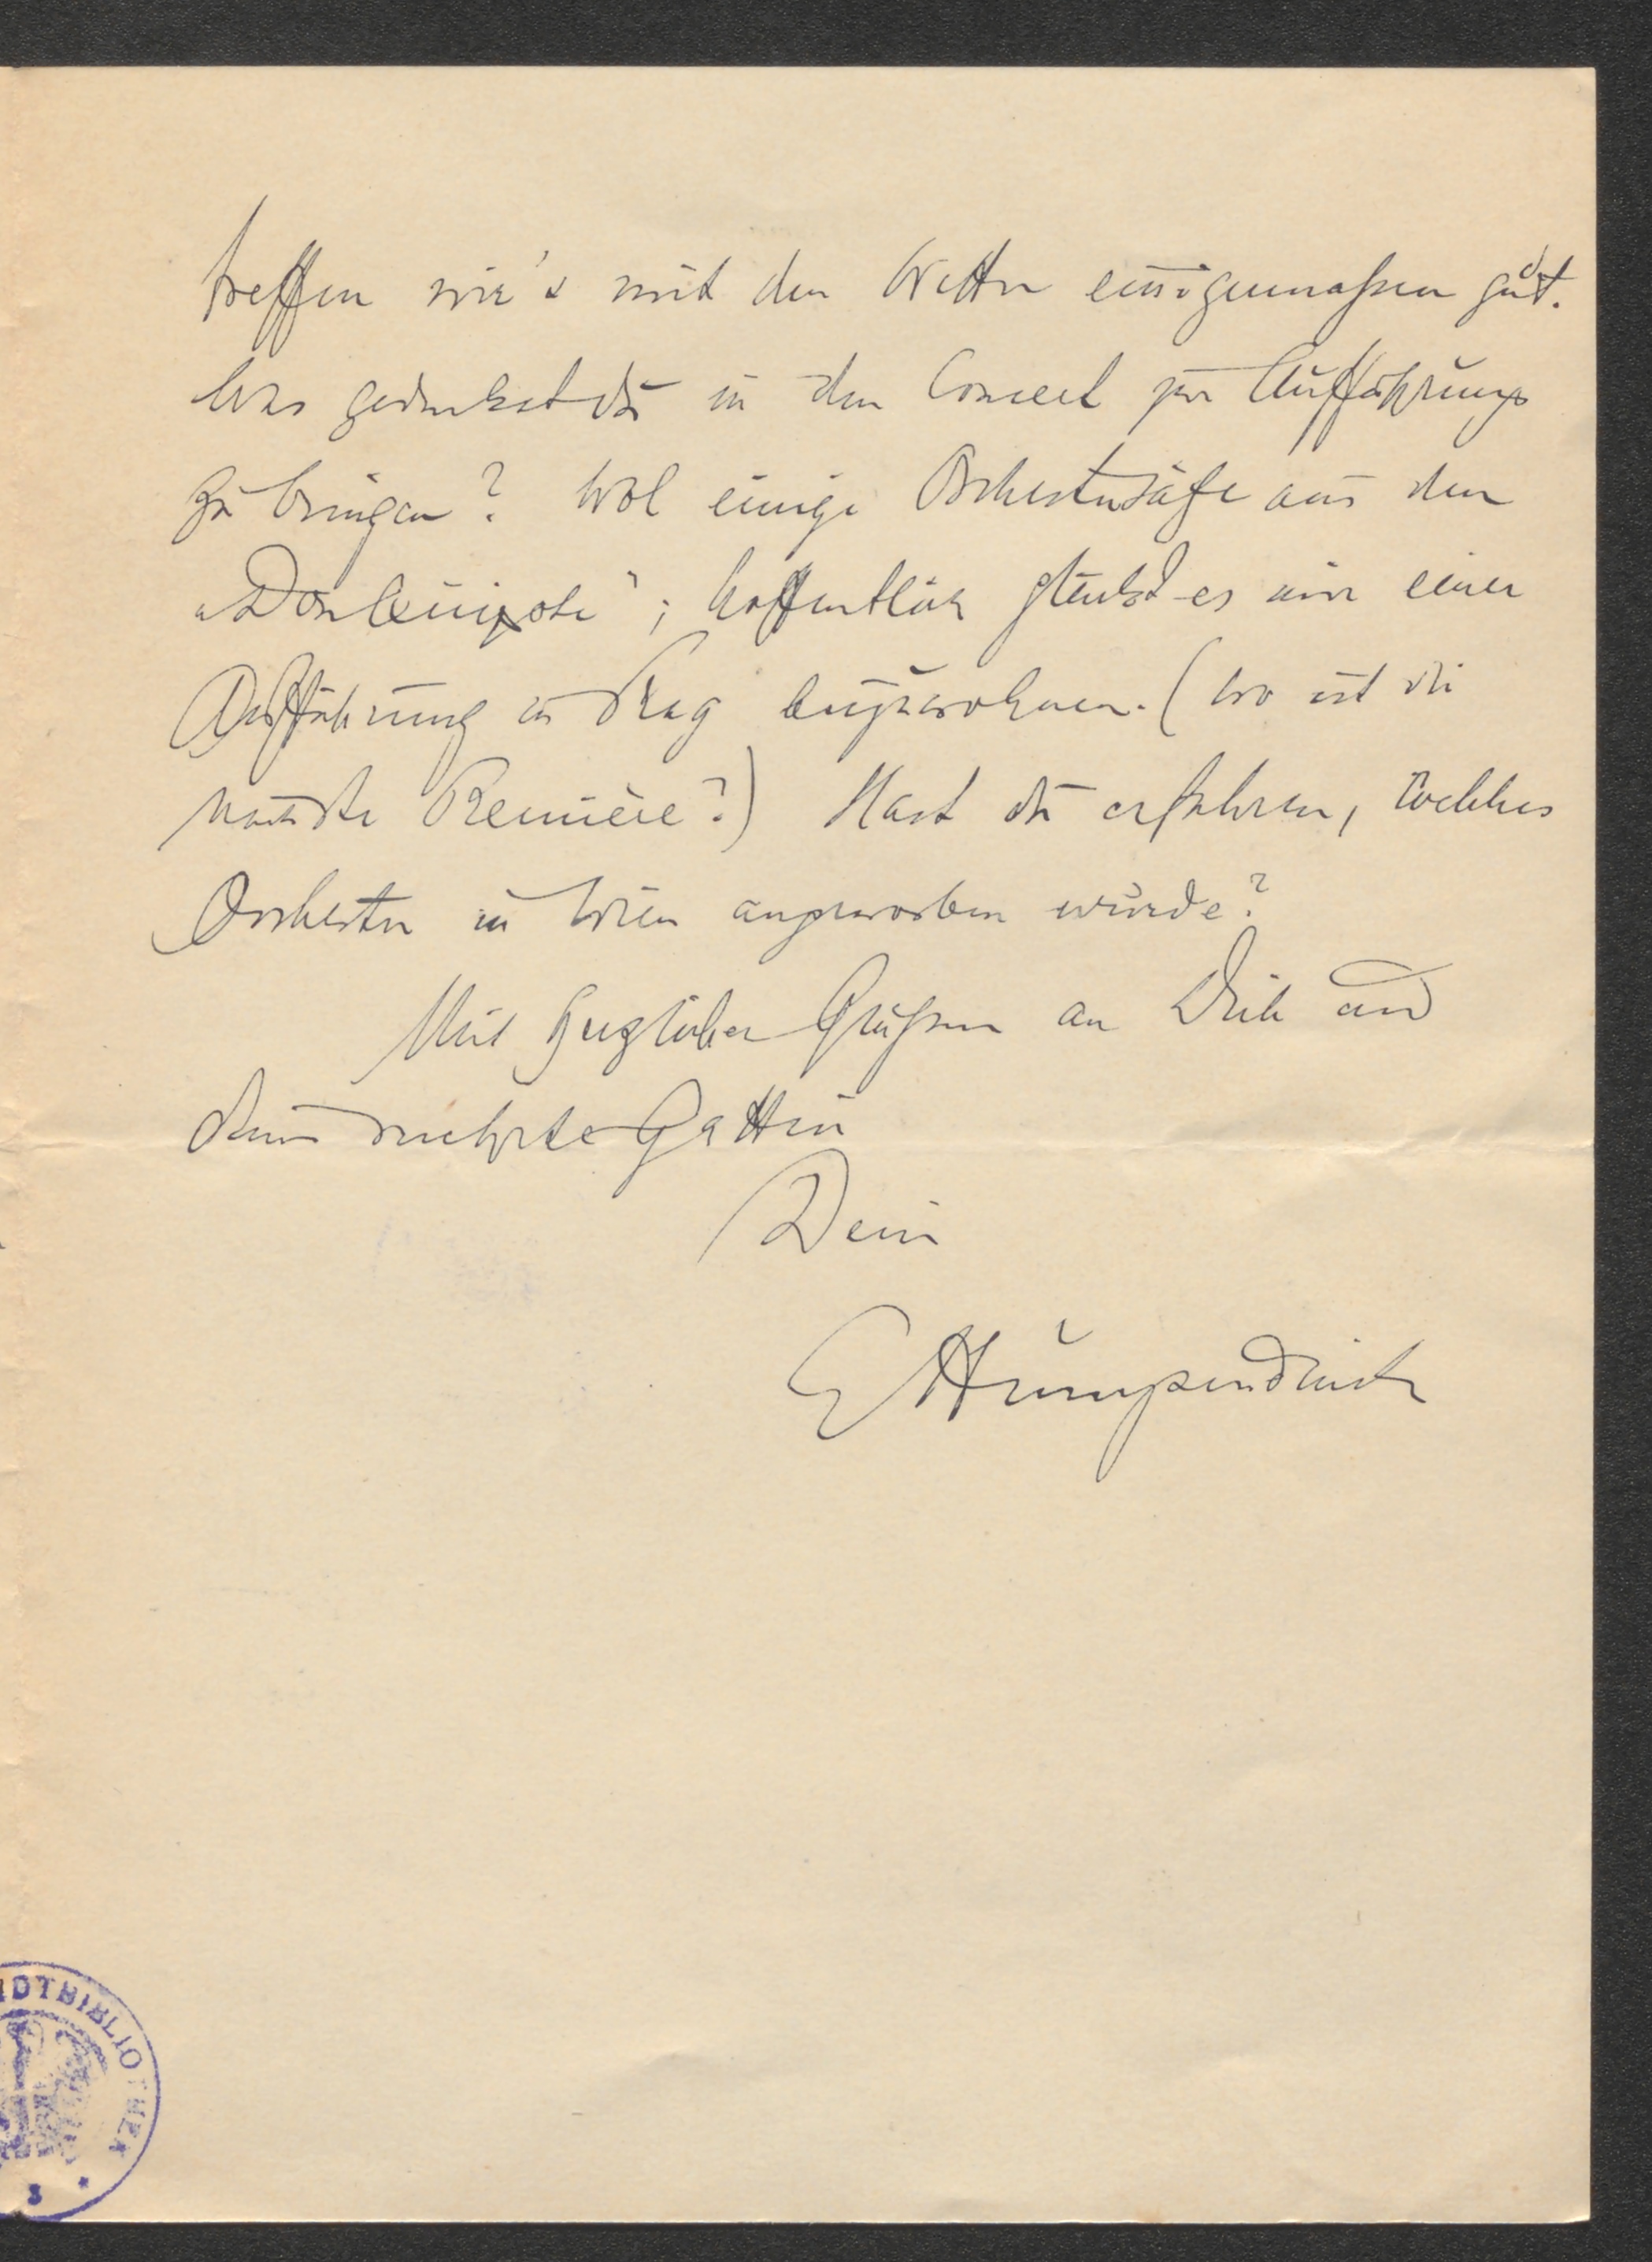 treffen wir's mit dem Wetter einigermaßen gut.
Was gedenkst du in dem Concert zur Aufführung
zu bringen? Wol einige Orchestersätze aus dem
„Don Quixote“; hoffentlich glückt es mir einer
Aufführung in Prag beizuwohnen. (Wo ist die
nächste Première?) Hast du erfahren, welches
Orchester in Wien angeworben wurde?
Mit herzlichen Grüßen an Dich und
Deine verehrte Gattin
Dein
E Humperdinck
DTBIBLIOTHEK